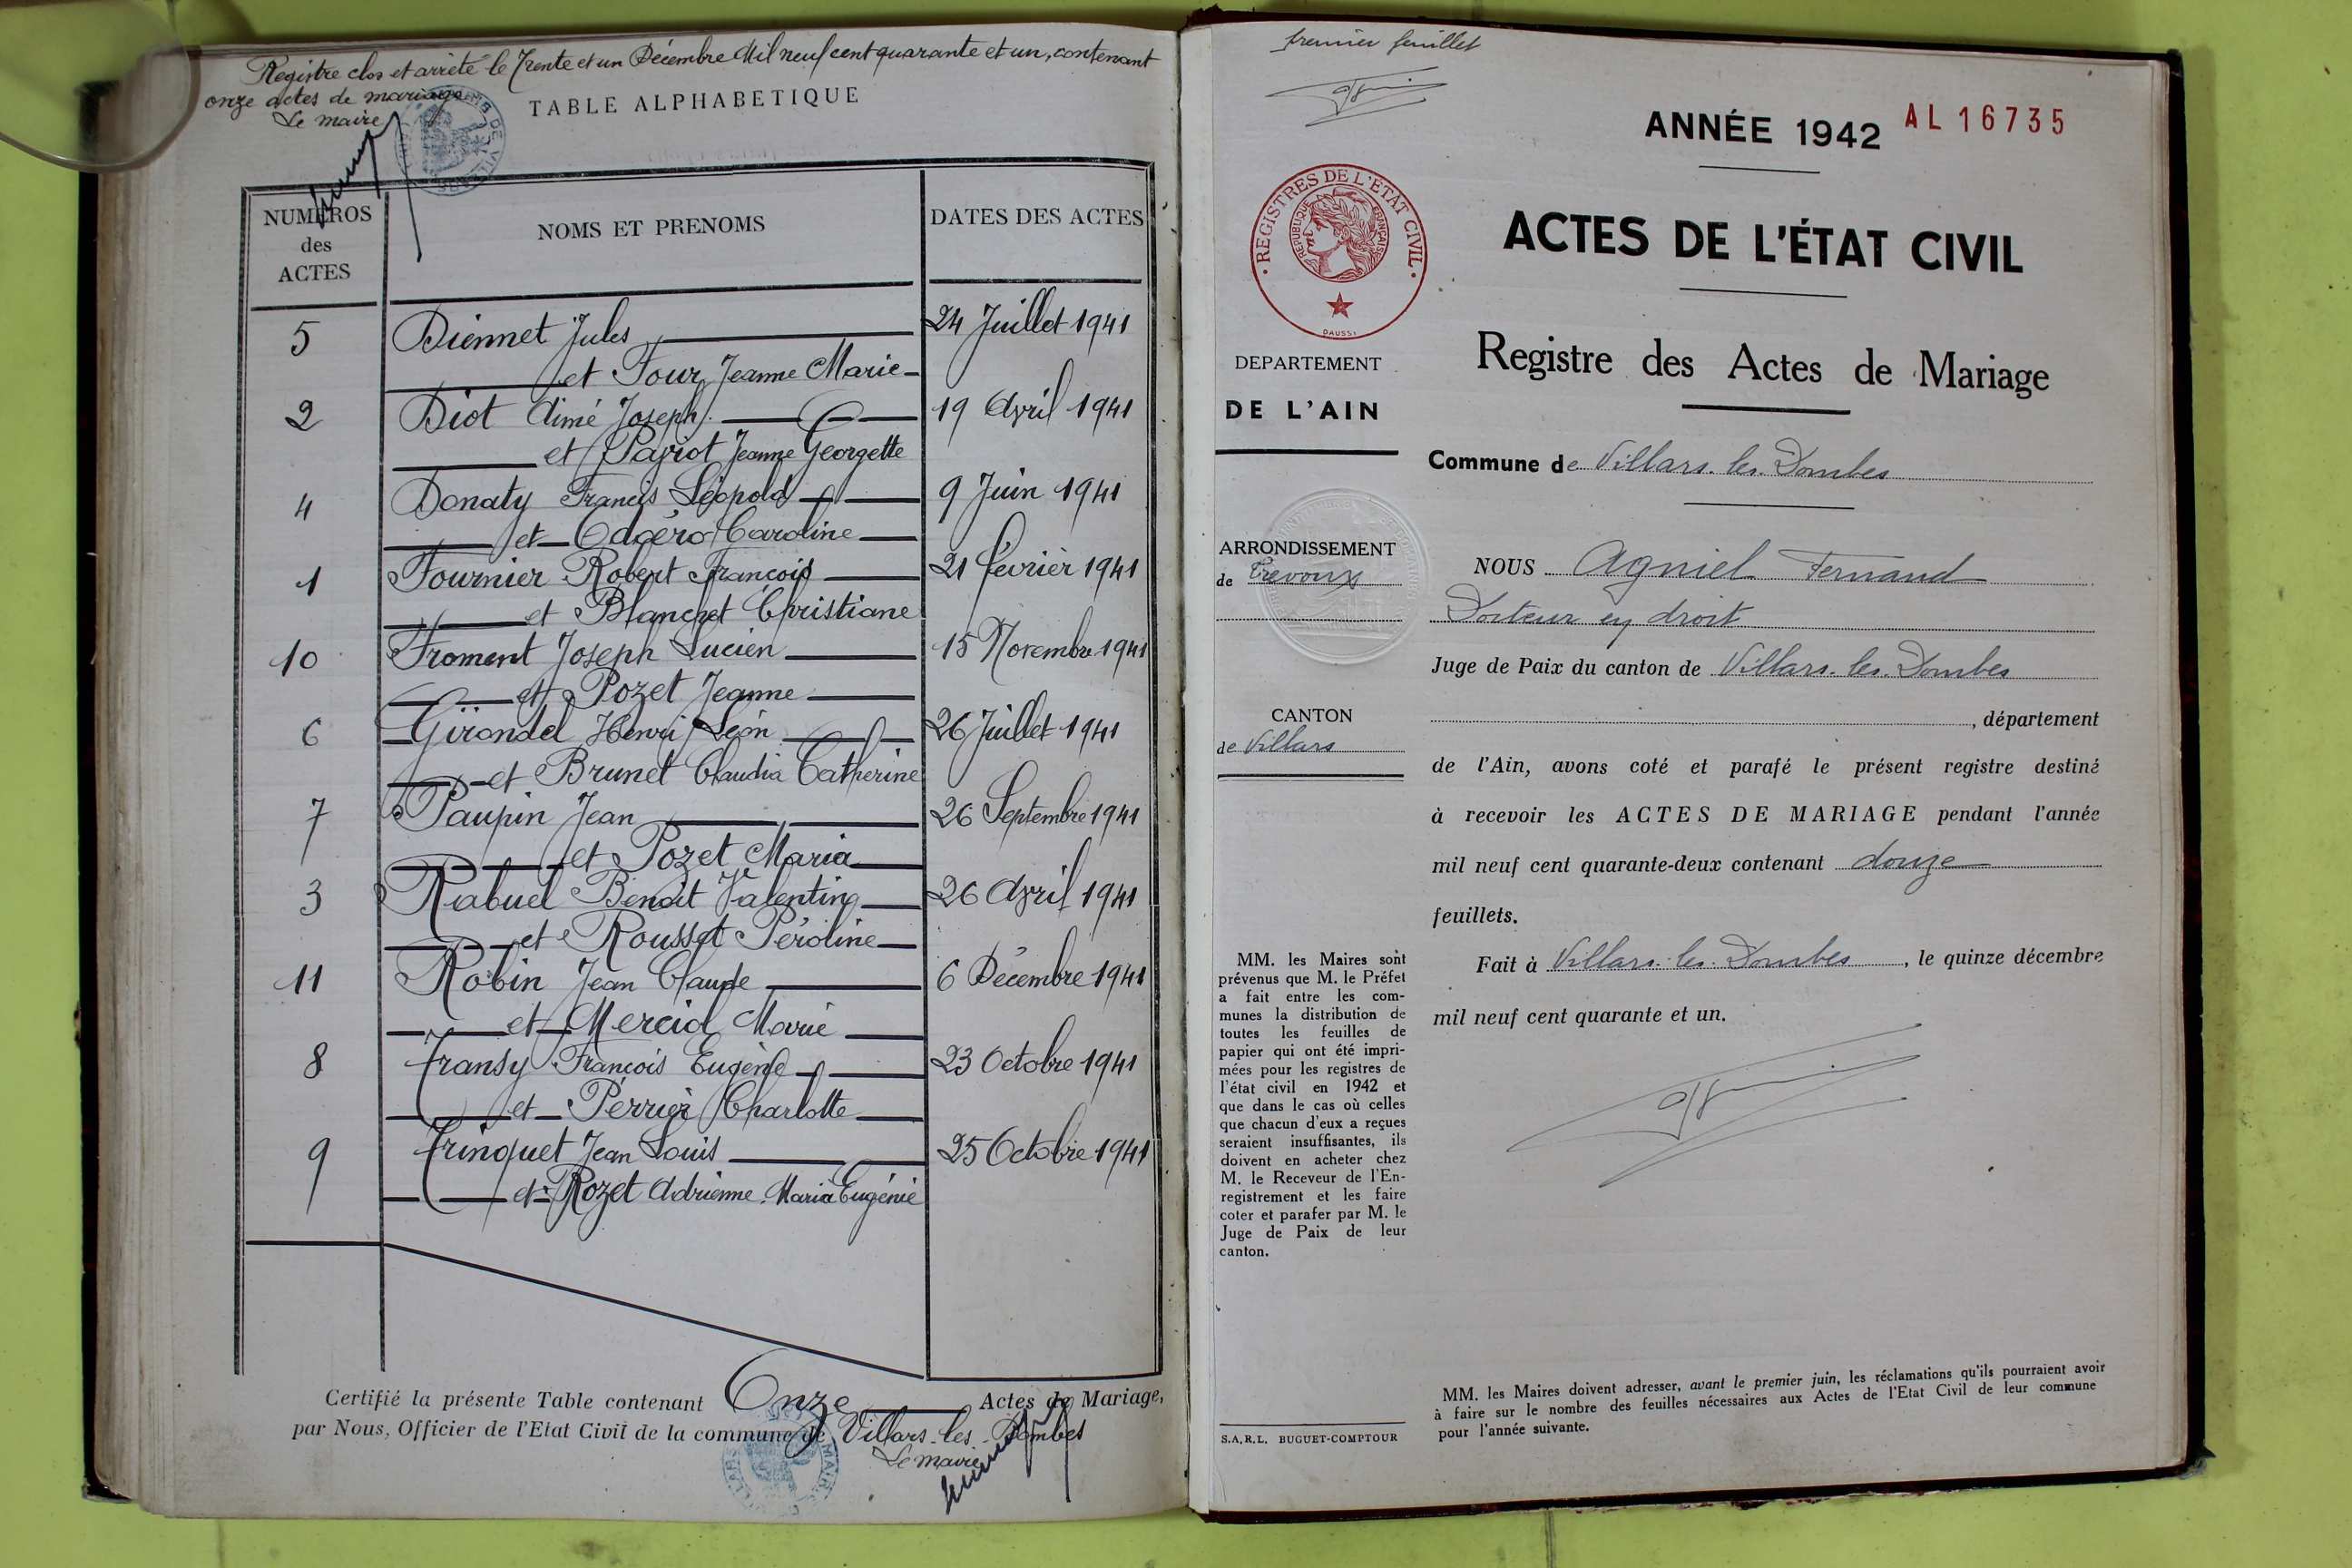 Registre clos et arrêté le Trente et un Décembre Mil neuf cent quarante et un, contenant
onze actes de mariage
Le maire
TABLE ALPHABETIQUE
NUMÉROS
des
ACTES
NOMS ET PRENOMS
DATES DES ACTES
5 Diennet Jules 24 Juillet 1941
et Four Jeanne Marie
2 Diot Aimé Joseph 19 Avril 1941
et Payiot Jeanne Georgette
4 Donaty Francis Léopold 9 Juin 1941
et Odoéro Caroline
1 Fournier Robert François 21 Février 1941
et Blanchet Christiane
10 Froment Joseph Lucien 15 Novembre 1941
et Pozet Jeanne
6 Girondel Henri Léon 26 Juillet 1941
et Brunet Claudia Catherine
7 Paupin Jean 26 Septembre 1941
et Pozet Maria
3 Rabuel Benoît Valentin 26 Avril 1941
et Rousset Péroline
11 Robin Jean Claude 6 Décembre 1941
et Mercid Marie
8 Transy François Eugène 23 Octobre 1941
et Perrier Charlotte
9 Trinquet Jean Louis 25 Octobre 1941
et Rozet Adrienne Maria Eugénie
Certifié la présente Table contenant Onze Actes de Mariage,
par Nous, Officier de l'Etat Civil de la commune de Villars-les-Dombes
Le maire
premier feuillet
ANNÉE 1942
AL 16735
REGISTRES DE L'ETAT CIVIL
REPUBLIQUE FRANÇAISE
DAUSSY
ACTES DE L'ÉTAT CIVIL
Registre des Actes de Mariage
DEPARTEMENT
DE L'AIN
Commune de Villars-les-Dombes
ARRONDISSEMENT
de Trévoux
CANTON
de Villars
NOUS Agniel Fernand
Docteur en droit
Juge de Paix du canton de Villars-les-Dombes
, département
de l'Ain, avons coté et parafé le présent registre destiné
à recevoir les ACTES DE MARIAGE pendant l'année
mil neuf cent quarante-deux contenant douze
feuillets.
Fait à Villars-les-Dombes, le quinze décembre
mil neuf cent quarante et un.
MM. les Maires sont
prévenus que M. le Préfet
a fait entre les com-
munes la distribution de
toutes les feuilles de
papier qui ont été impri-
mées pour les registres de
l'état civil en 1942 et
que dans le cas où celles
que chacun d'eux a reçues
seraient insuffisantes, ils
doivent en acheter chez
M. le Receveur de l'En-
registrement et les faire
coter et parafer par M. le
Juge de Paix de leur
canton.
S.A.R.L. BUGUET-COMPTOUR
MM. les Maires doivent adresser, avant le premier juin, les réclamations qu'ils pourraient avoir
à faire sur le nombre des feuilles nécessaires aux Actes de l'Etat Civil de leur commune
pour l'année suivante.